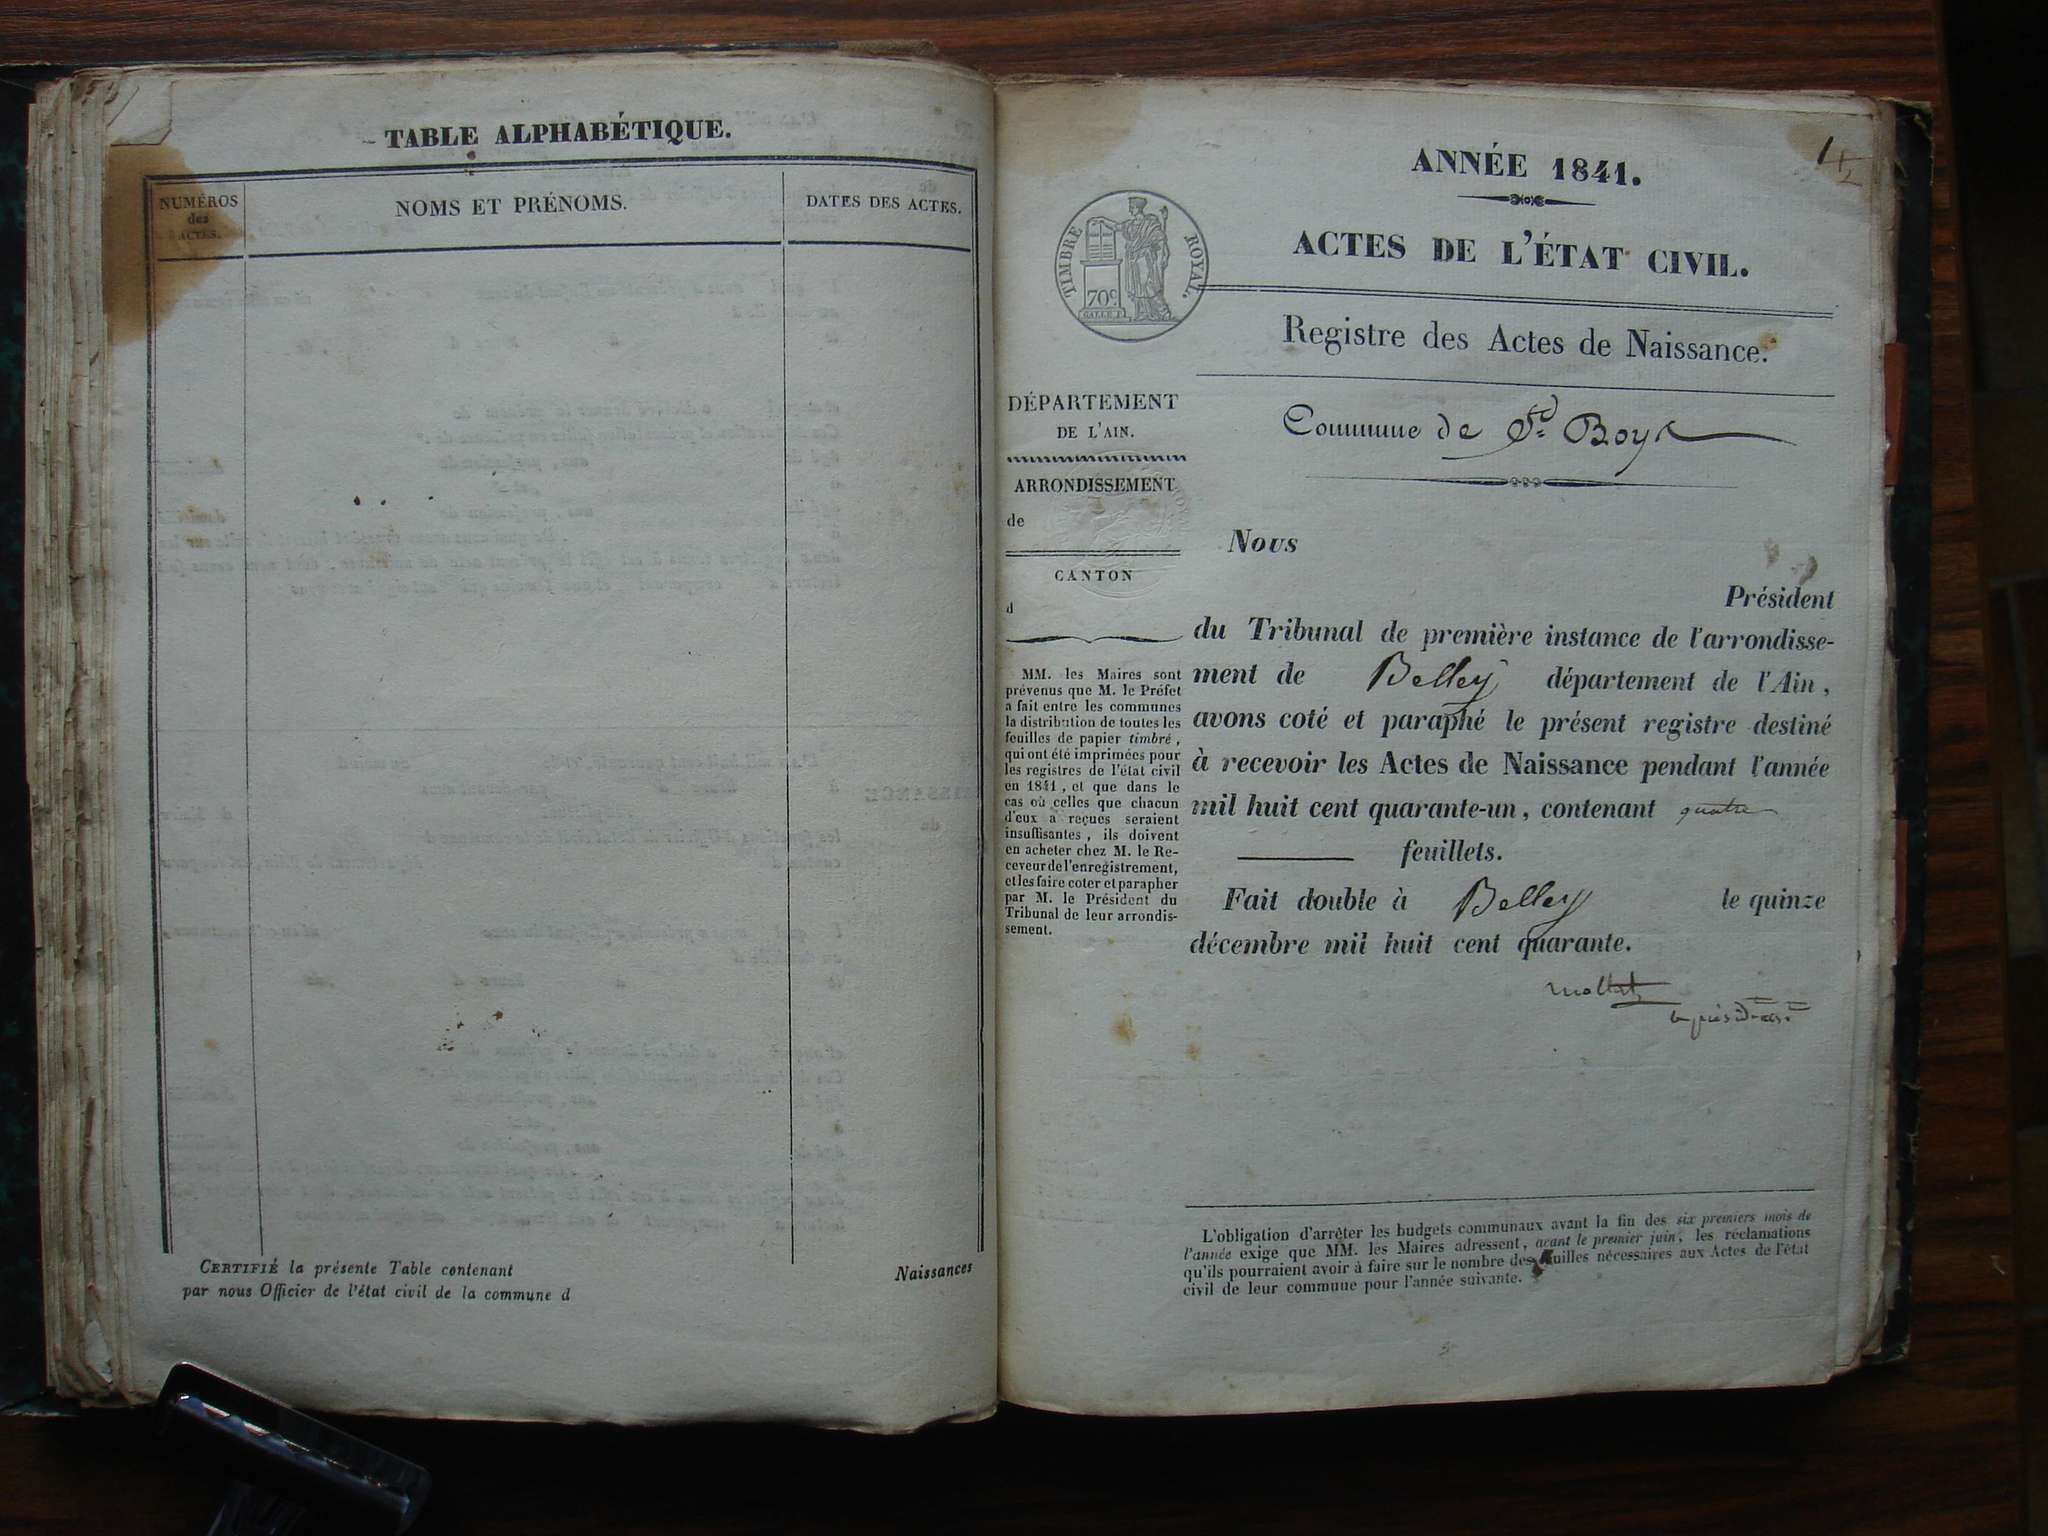 TABLE ALPHABÉTIQUE.
NUMÉROS
des
ACTES.
NOMS ET PRÉNOMS.
DATES DES ACTES.
CERTIFIÉ la présente Table contenant Naissances
par nous Officier de l'état civil de la commune d
1
ANNÉE 1841.
ACTES DE L'ÉTAT CIVIL.
TIMBRE ROYAL.
70c
Registre des Actes de Naissance.
Commune de St. Boys
DÉPARTEMENT
DE L'AIN.
ARRONDISSEMENT
de
CANTON
d
MM. les Maires sont
prévenus que M. le Préfet
a fait entre les communes
la distribution de toutes les
feuilles de papier timbré,
qui ont été imprimées pour
les registres de l'état civil
en 1841, et que dans le
cas où celles que chacun
d'eux a reçues seraient
insuffisantes, ils doivent
en acheter chez M. le Re-
ceveur de l'enregistrement,
et les faire coter et parapher
par M. le Président du
Tribunal de leur arrondis-
sement.
Nous
Président
du Tribunal de première instance de l'arrondisse-
ment de Belley département de l'Ain,
avons coté et paraphé le présent registre destiné
à recevoir les Actes de Naissance pendant l'année
mil huit cent quarante-un, contenant quatre
feuillets.
Fait double à Belley le quinze
décembre mil huit cent quarante.
L'obligation d'arrêter les budgets communaux avant la fin des six premiers mois de
l'année exige que MM. les Maires adressent, avant le premier juin, les réclamations
qu'ils pourraient avoir à faire sur le nombre des feuilles nécessaires aux Actes de l'état
civil de leur commune pour l'année suivante.